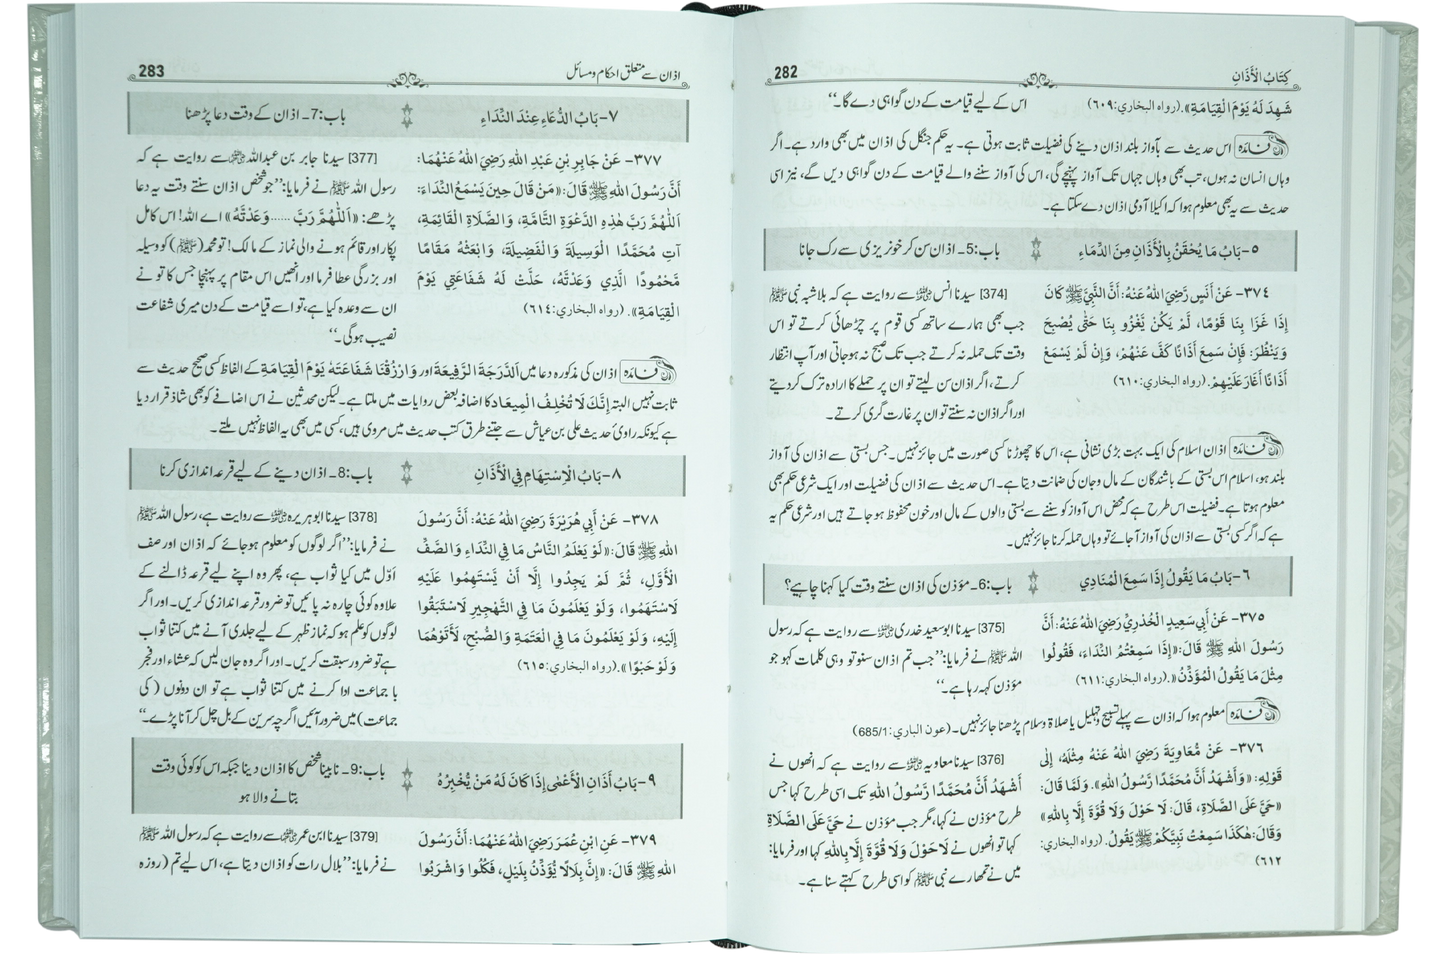 كِتَابُ الأَذَانِ
282
شَهِدَ لَهُ يَوْمَ الْقِيَامَةِ». (رواه البخاري: ٦٠٩)
اس کے لیے قیامت کے دن گواہی دے گا۔‘‘
فائدہ اس حدیث سے بآواز بلند اذان دینے کی فضیلت ثابت ہوتی ہے۔ یہ حکم جنگل کی اذان میں بھی وارد ہے۔ اگر
وہاں انسان نہ ہوں، تب بھی وہاں جہاں تک آواز پہنچے گی، اس کی آواز سننے والے قیامت کے دن گواہی دیں گے، نیز اسی
حدیث سے یہ بھی معلوم ہوا کہ اکیلا آدمی اذان دے سکتا ہے۔
٥- بَابُ مَا يُحْقَنُ بِالْأَذَانِ مِنَ الدِّمَاءِ
باب:5۔ اذان سن کر خونریزی سے رک جانا
٣٧٤- عَنْ أَنَسٍ رَّضِيَ اللهُ عَنْهُ: أَنَّ النَّبِيَّ ﷺ كَانَ
إِذَا غَزَا بِنَا قَوْمًا، لَمْ يَكُنْ يَغْزُو بِنَا حَتَّى يُصْبِحَ
وَيَنْظُرَ: فَإِنْ سَمِعَ أَذَانًا كَفَّ عَنْهُمْ، وَإِنْ لَمْ يَسْمَعْ
أَذَانًا أَغَارَ عَلَيْهِمْ. (رواه البخاري: ٦١٠)
[374] سیدنا انس ؓ سے روایت ہے کہ بلاشبہ نبی ﷺ
جب بھی ہمارے ساتھ کسی قوم پر چڑھائی کرتے تو اس
وقت تک حملہ نہ کرتے جب تک صبح نہ ہو جاتی اور آپ انتظار
کرتے، اگر اذان سن لیتے تو ان پر حملے کا ارادہ ترک کر دیتے
اور اگر اذان نہ سنتے تو ان پر غارت گری کرتے۔
فائدہ اذان اسلام کی ایک بہت بڑی نشانی ہے، اس کا چھوڑنا کسی صورت میں جائز نہیں۔ جس بستی سے اذان کی آواز
بلند ہو، اسلام اس بستی کے باشندگان کے مال و جان کی ضمانت دیتا ہے۔ اس حدیث سے اذان کی فضیلت اور ایک شرعی حکم بھی
معلوم ہوتا ہے۔ فضیلت اس طرح ہے کہ محض اس آواز کو سننے سے بستی والوں کے مال اور خون محفوظ ہو جاتے ہیں اور شرعی حکم یہ
ہے کہ اگر کسی بستی سے اذان کی آواز آ جائے تو وہاں حملہ کرنا جائز نہیں۔
٦- بَابُ مَا يَقُولُ إِذَا سَمِعَ الْمُنَادِي
باب:6۔ مؤذن کی اذان سنتے وقت کیا کہنا چاہیے؟
٣٧٥- عَنْ أَبِي سَعِيدٍ الْخُدْرِيِّ رَضِيَ اللهُ عَنْهُ: أَنَّ
رَسُولَ اللهِ ﷺ قَالَ: «إِذَا سَمِعْتُمُ النِّدَاءَ، فَقُولُوا
مِثْلَ مَا يَقُولُ الْمُؤَذِّنُ». (رواه البخاري: ٦١١)
[375] سیدنا ابو سعید خدری ؓ سے روایت ہے کہ رسول
اللہ ﷺ نے فرمایا: ’’جب تم اذان سنو تو وہی کلمات کہو جو
مؤذن کہہ رہا ہے۔‘‘
فائدہ معلوم ہوا کہ اذان سے پہلے تسبیح و تہلیل یا صلاۃ و سلام پڑھنا جائز نہیں۔ (عون الباري: 685/1)
٣٧٦- عَنْ مُّعَاوِيَةَ رَضِيَ اللهُ عَنْهُ مِثْلَهُ، إِلَى
قَوْلِهِ: «وَأَشْهَدُ أَنَّ مُحَمَّدًا رَّسُولُ اللهِ». وَلَمَّا قَالَ:
«حَيَّ عَلَى الصَّلَاةِ، قَالَ: لَا حَوْلَ وَلَا قُوَّةَ إِلَّا بِاللهِ»
وَقَالَ: هٰكَذَا سَمِعْتُ نَبِيَّكُمْ ﷺ يَقُولُ. (رواه البخاري:
٦١٢)
[376] سیدنا معاویہ ؓ سے روایت ہے کہ انھوں نے
أَشْهَدُ أَنَّ مُحَمَّدًا رَّسُولُ اللهِ تک اسی طرح کہا جس
طرح مؤذن نے کہا، مگر جب مؤذن نے حَيَّ عَلَى الصَّلَاةِ
کہا تو انھوں نے لَا حَوْلَ وَلَا قُوَّةَ إِلَّا بِاللهِ کہا اور فرمایا:
میں نے تمھارے نبی ﷺ کو اسی طرح کہتے سنا ہے۔
اذان سے متعلق احکام و مسائل
283
٧- بَابُ الدُّعَاءِ عِنْدَ النِّدَاءِ
باب:7۔ اذان کے وقت دعا پڑھنا
٣٧٧- عَنْ جَابِرِ بْنِ عَبْدِ اللهِ رَضِيَ اللهُ عَنْهُمَا:
أَنَّ رَسُولَ اللهِ ﷺ قَالَ: «مَنْ قَالَ حِينَ يَسْمَعُ النِّدَاءَ:
اَللّٰهُمَّ رَبَّ هٰذِهِ الدَّعْوَةِ التَّامَّةِ، وَالصَّلَاةِ الْقَائِمَةِ،
آتِ مُحَمَّدًا الْوَسِيلَةَ وَالْفَضِيلَةَ، وَابْعَثْهُ مَقَامًا
مَّحْمُودًا الَّذِي وَعَدْتَّهُ، حَلَّتْ لَهُ شَفَاعَتِي يَوْمَ
الْقِيَامَةِ». (رواه البخاري: ٦١٤)
[377] سیدنا جابر بن عبداللہ ؓ سے روایت ہے کہ
رسول اللہ ﷺ نے فرمایا: ’’جو شخص اذان سنتے وقت یہ دعا
پڑھے: «اَللّٰهُمَّ رَبَّ ...... وَعَدْتَّهُ» اے اللہ! اس کامل
پکار اور قائم ہونے والی نماز کے مالک! تو محمد (ﷺ) کو وسیلہ
اور بزرگی عطا فرما اور انھیں اس مقام پر پہنچا جس کا تو نے
ان سے وعدہ کیا ہے، تو اسے قیامت کے دن میری شفاعت
نصیب ہوگی۔‘‘
فائدہ اذان کی مذکورہ دعا میں اَلدَّرَجَةَ الرَّفِيعَةَ اور وَارْزُقْنَا شَفَاعَتَهُ يَوْمَ الْقِيَامَةِ کے الفاظ کسی صحیح حدیث سے
ثابت نہیں البتہ إِنَّكَ لَا تُخْلِفُ الْمِيعَادَ کا اضافہ بعض روایات میں ملتا ہے۔ لیکن محدثین نے اس اضافے کو بھی شاذ قرار دیا
ہے کیونکہ راویٔ حدیث علی بن عیاش سے جتنے طرق کتب حدیث میں مروی ہیں، کسی میں بھی یہ الفاظ نہیں ملتے۔
٨- بَابُ الْاِسْتِهَامِ فِي الْأَذَانِ
باب:8۔ اذان دینے کے لیے قرعہ اندازی کرنا
٣٧٨- عَنْ أَبِي هُرَيْرَةَ رَضِيَ اللهُ عَنْهُ: أَنَّ رَسُولَ
اللهِ ﷺ قَالَ: «لَوْ يَعْلَمُ النَّاسُ مَا فِي النِّدَاءِ وَالصَّفِّ
الْأَوَّلِ، ثُمَّ لَمْ يَجِدُوا إِلَّا أَنْ يَّسْتَهِمُوا عَلَيْهِ
لَاسْتَهَمُوا، وَلَوْ يَعْلَمُونَ مَا فِي التَّهْجِيرِ لَاسْتَبَقُوا
إِلَيْهِ، وَلَوْ يَعْلَمُونَ مَا فِي الْعَتَمَةِ وَالصُّبْحِ، لَأَتَوْهُمَا
وَلَوْ حَبْوًا». (رواه البخاري: ٦١٥)
[378] سیدنا ابوہریرہ ؓ سے روایت ہے، رسول اللہ ﷺ
نے فرمایا: ’’اگر لوگوں کو معلوم ہو جائے کہ اذان اور صف
اوّل میں کیا ثواب ہے، پھر وہ اپنے لیے قرعہ ڈالنے کے
علاوہ کوئی چارہ نہ پائیں تو ضرور قرعہ اندازی کریں۔ اور اگر
لوگوں کو علم ہو کہ نماز ظہر کے لیے جلدی آنے میں کتنا ثواب
ہے تو ضرور سبقت کریں۔ اور اگر وہ جان لیں کہ عشاء اور فجر
با جماعت ادا کرنے میں کتنا ثواب ہے تو ان دونوں (کی
جماعت) میں ضرور آئیں اگرچہ سرین کے بل چل کر آنا پڑے۔‘‘
٩- بَابُ أَذَانِ الْأَعْمَى إِذَا كَانَ لَهُ مَنْ يُّخْبِرُهُ
باب:9۔ نابینا شخص کا اذان دینا جبکہ اس کو کوئی وقت
بتانے والا ہو
٣٧٩- عَنِ ابْنِ عُمَرَ رَضِيَ اللهُ عَنْهُمَا: أَنَّ رَسُولَ
اللهِ ﷺ قَالَ: «إِنَّ بِلَالًا يُؤَذِّنُ بِلَيْلٍ، فَكُلُوا وَاشْرَبُوا
[379] سیدنا ابن عمر ؓ سے روایت ہے کہ رسول اللہ ﷺ
نے فرمایا: ’’بلال رات کو اذان دیتا ہے، اس لیے تم (روزہ